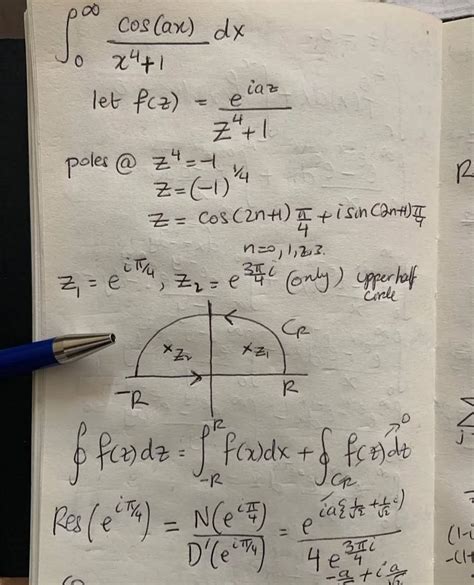 ∫₀^∞ cos(ax)/(x⁴+1) dx
let f(z) = e^{iaz}/(z⁴+1)
poles @ z⁴=-1
z=(-1)^{1/4}
z = cos(2n+1)π/4 + i sin(2n+1)π/4
n=0,1,2,3.
z₁ = e^{iπ/4}, z₂ = e^{3π/4 i} (only) upper half circle
C_R
×z₂ ×z₁
-R R
∮ f(z)dz = ∫_{-R}^{R} f(x)dx + ∮_{C_R} f(z)dz → 0
Res(e^{iπ/4}) = N(e^{iπ/4})/D'(e^{iπ/4}) = e^{ia{1/√2 + 1/√2 i}}/4e^{3π/4 i}
R
(1-i
-(1+